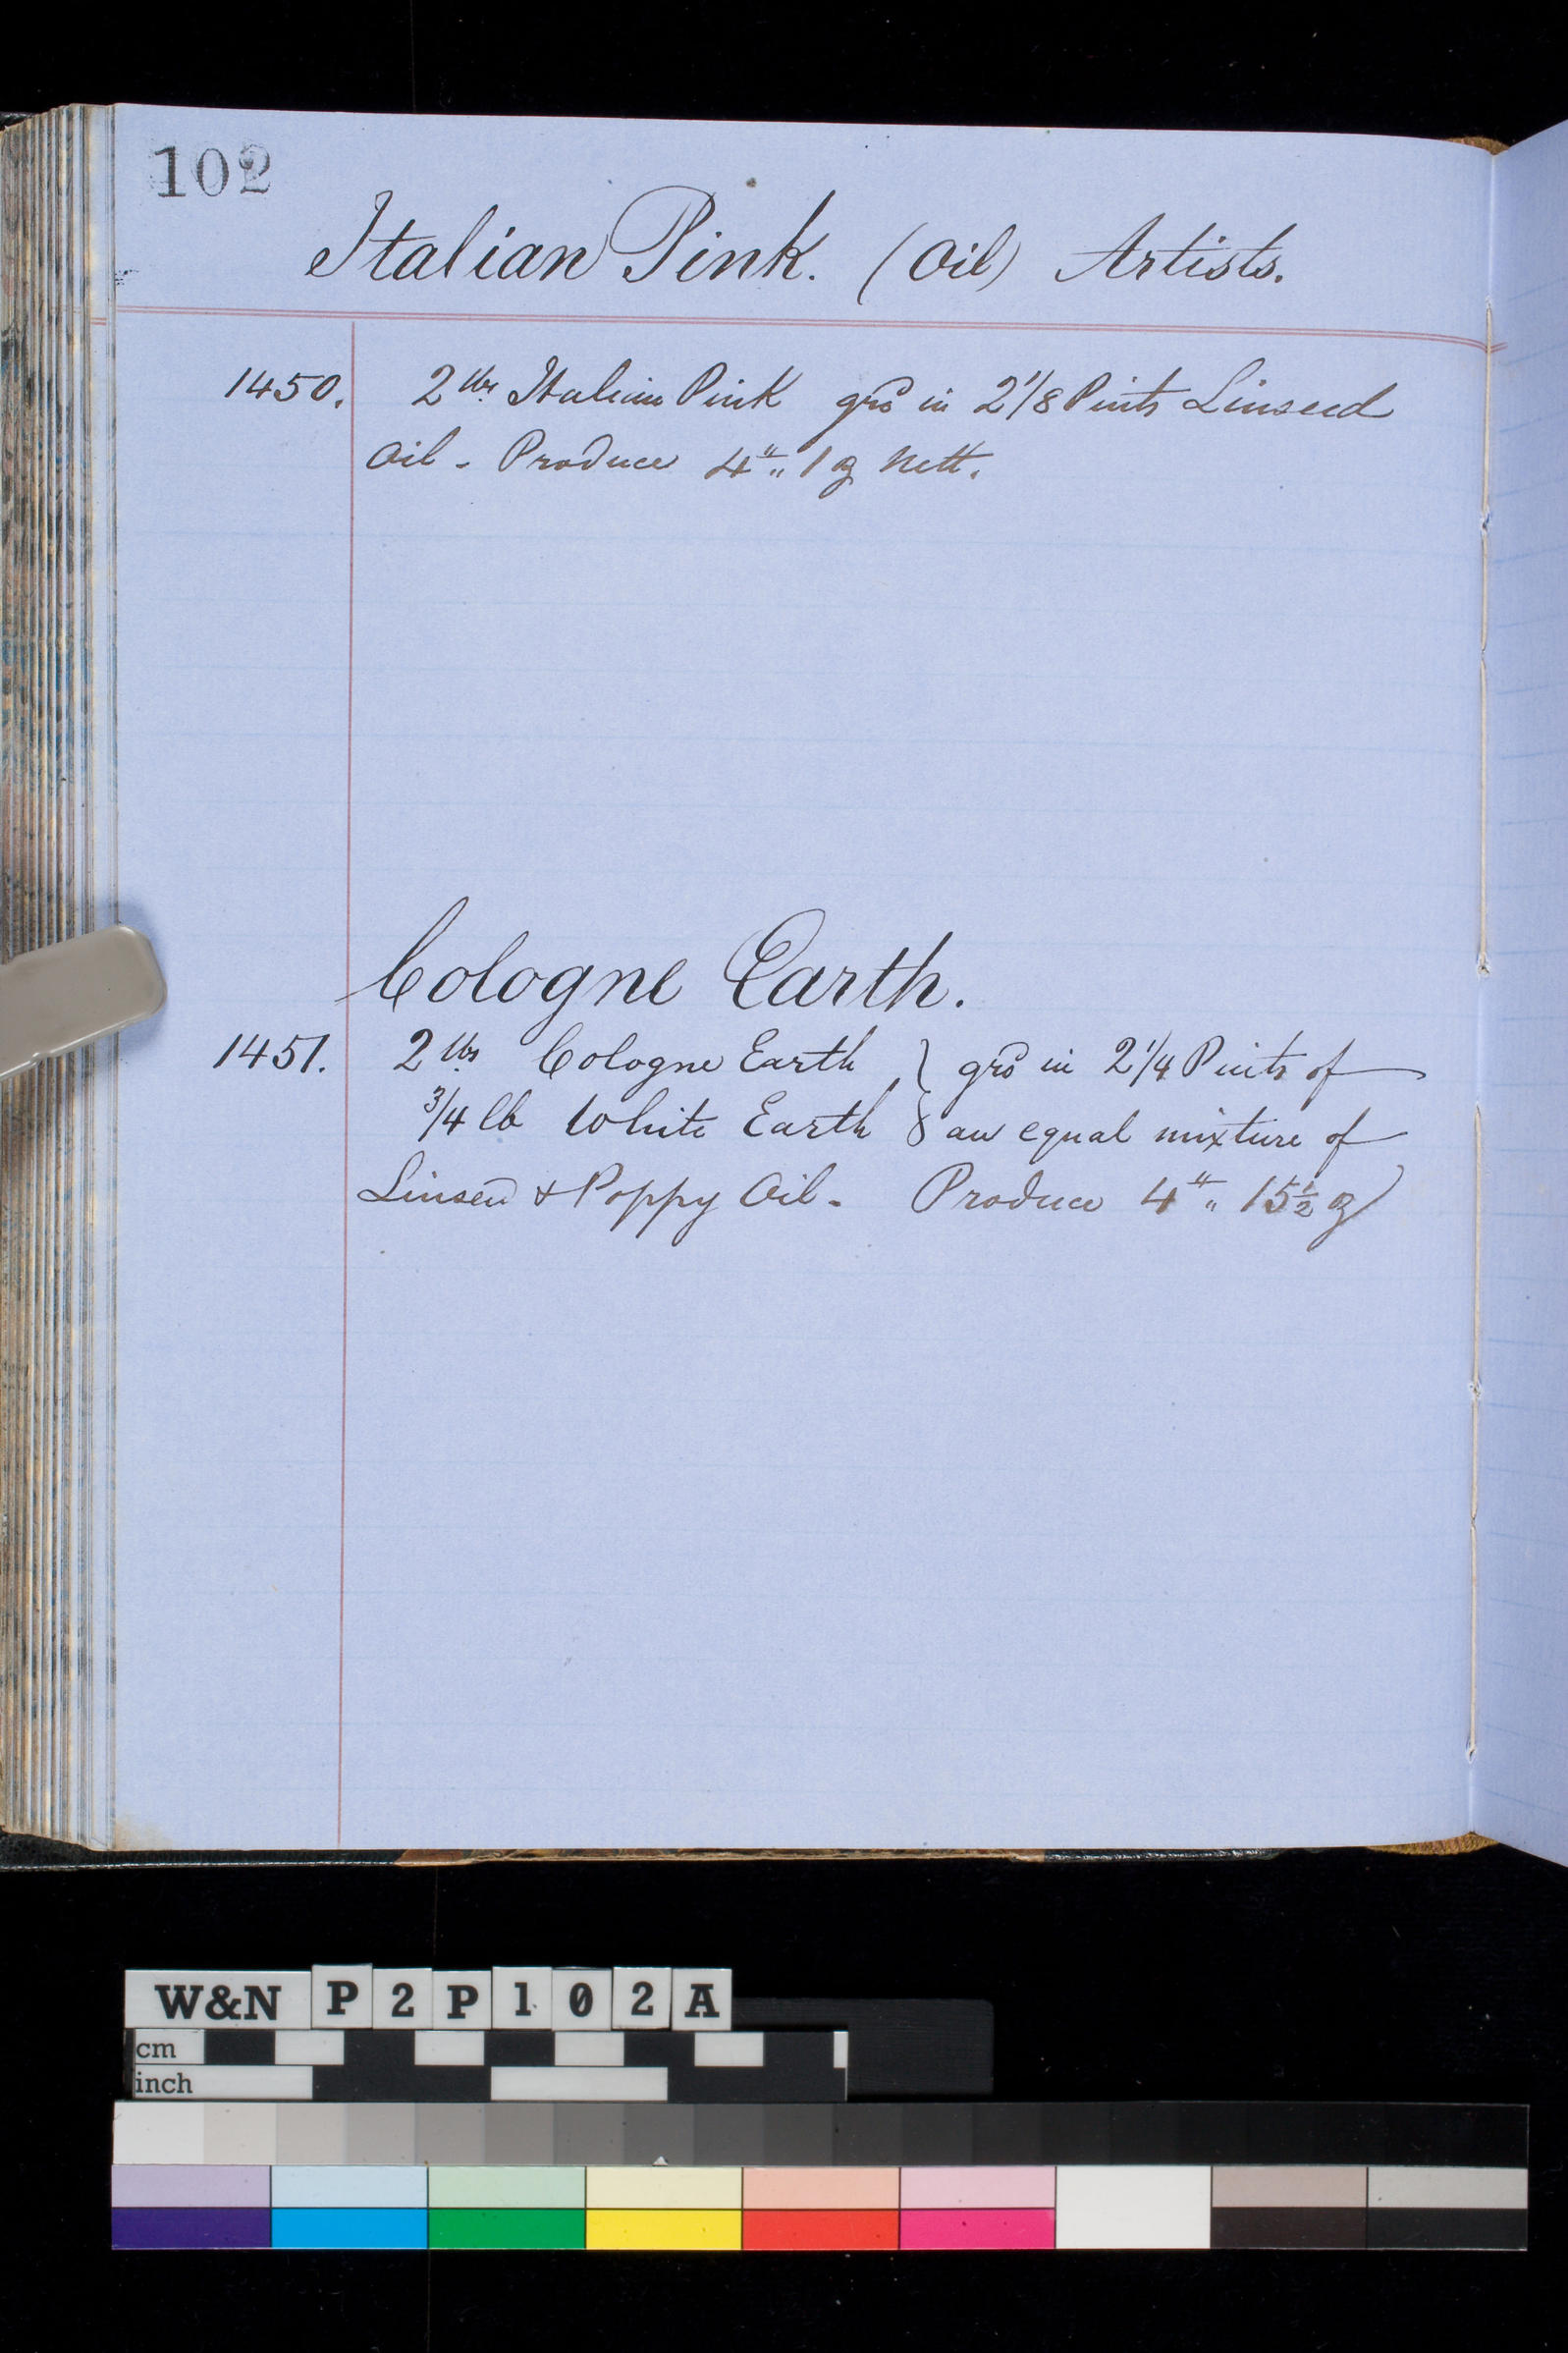 102
Italian Pink. (Oil) Artists.
1450. 2 lbs. Italian Pink grd in 2 1/8 Pints Linseed
Oil - Produce 4 lb „ 1 oz Nett.
Cologne Earth.
1451. 2 lbs. Cologne Earth } grd in 2 1/4 Pints of
3/4 lb White Earth } an equal mixture of
Linseed & Poppy Oil - Produce 4 lb „ 15 1/2 oz
W&N P2P102A
cm
inch